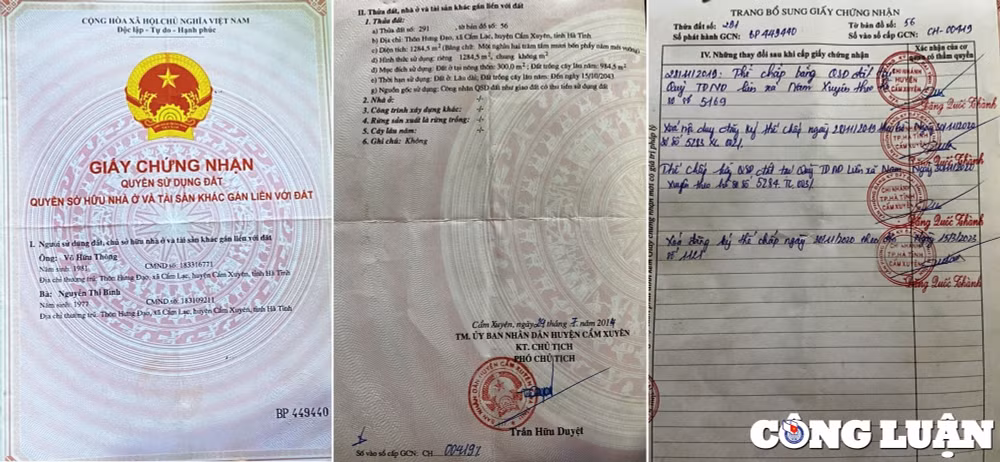 CỘNG HÒA XÃ HỘI CHỦ NGHĨA VIỆT NAM
Độc lập - Tự do - Hạnh phúc
GIẤY CHỨNG NHẬN
QUYỀN SỬ DỤNG ĐẤT
QUYỀN SỞ HỮU NHÀ Ở VÀ TÀI SẢN KHÁC GẮN LIỀN VỚI ĐẤT
I. Người sử dụng đất, chủ sở hữu nhà ở và tài sản khác gắn liền với đất
Ông: Võ Hữu Thông
Năm sinh: 1981 CMND số: 183316771
Địa chỉ thường trú: Thôn Hưng Đạo, xã Cẩm Lạc, huyện Cẩm Xuyên, tỉnh Hà Tĩnh
Bà: Nguyễn Thị Bình
Năm sinh: 1977 CMND số: 183109211
Địa chỉ thường trú: Thôn Hưng Đạo, xã Cẩm Lạc, huyện Cẩm Xuyên, tỉnh Hà Tĩnh
BP 449440
II. Thửa đất, nhà ở và tài sản khác gắn liền với đất
1. Thửa đất:
a) Thửa đất số: 291 , tờ bản đồ số: 56
b) Địa chỉ: Thôn Hưng Đạo, xã Cẩm Lạc, huyện Cẩm Xuyên, tỉnh Hà Tĩnh
c) Diện tích: 1284,5 m² (Bằng chữ: Một nghìn hai trăm tám mươi bốn phẩy năm mét vuông)
d) Hình thức sử dụng: riêng 1284,5 m², chung không m²
đ) Mục đích sử dụng: Đất ở tại nông thôn: 300,0 m²; Đất trồng cây lâu năm: 984,5 m²
e) Thời hạn sử dụng: Đất ở: Lâu dài; Đất trồng cây lâu năm: Đến ngày 15/10/2043
g) Nguồn gốc sử dụng: Công nhận QSD đất như giao đất có thu tiền sử dụng đất
2. Nhà ở: -/-
3. Công trình xây dựng khác: -/-
4. Rừng sản xuất là rừng trồng: -/-
5. Cây lâu năm: -/-
6. Ghi chú: Không
Cẩm Xuyên, ngày 29 tháng 7 năm 2014
TM. ỦY BAN NHÂN DÂN HUYỆN CẨM XUYÊN
KT. CHỦ TỊCH
PHÓ CHỦ TỊCH
Trần Hữu Duyệt
Số vào sổ cấp GCN: CH 00419
TRANG BỔ SUNG GIẤY CHỨNG NHẬN
Thửa đất số: 291 Tờ bản đồ số: 56
Số phát hành GCN: BP 449440 Số vào sổ cấp GCN: CH-00419
IV. Những thay đổi sau khi cấp giấy chứng nhận
Xác nhận của cơ quan có thẩm quyền
28/11/2019: Thế chấp bằng QSD đất tại
Quỹ TDND liên xã Nam Xuyên theo
số 5169
Đặng Quốc Thành
Xóa nội dung đăng ký thế chấp ngày 28/11/2019 Ngày 30/11/2020
số 5283
Đặng Quốc Thành
Thế chấp QSD đất tại Quỹ TDND liên xã Nam Ngày 30/11/2020
Xuyên theo hồ sơ số 5284
Đặng Quốc Thành
Xóa đăng ký thế chấp ngày 30/11/2020 theo Ngày
số 1121
Đặng Quốc Thành
CÔNG LUẬN